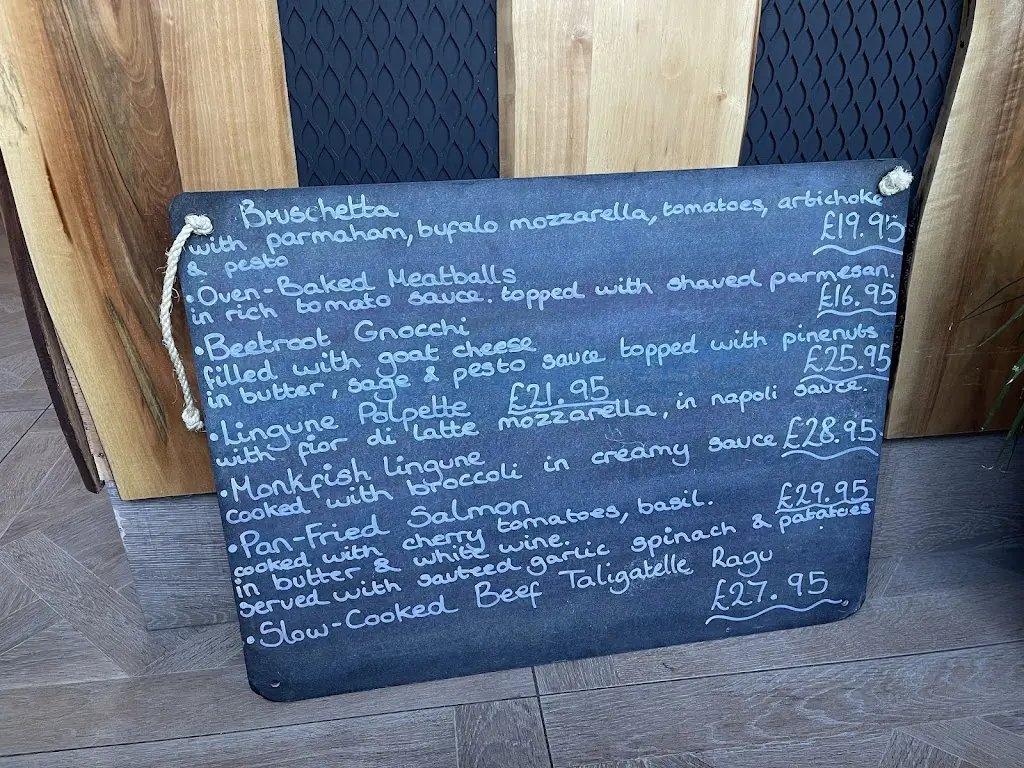 Bruschetta
with parmaham, bufalo mozzarella, tomatoes, artichoke
& pesto £19.95
•Oven-Baked Meatballs
in rich tomato sauce. topped with shaved parmesan.
£16.95
•Beetroot Gnocchi
filled with goat cheese
in butter, sage & pesto sauce topped with pinenuts
£25.95
•Lingune Polpette £21.95
with fior di latte mozzarella, in napoli sauce.
•Monkfish lingune
cooked with broccoli in creamy sauce £28.95
•Pan-Fried Salmon
cooked with cherry tomatoes, basil. £29.95
in butter & white wine.
served with sauteed garlic spinach & patatoes
•Slow-Cooked Beef Taligatelle Ragu
£27.95